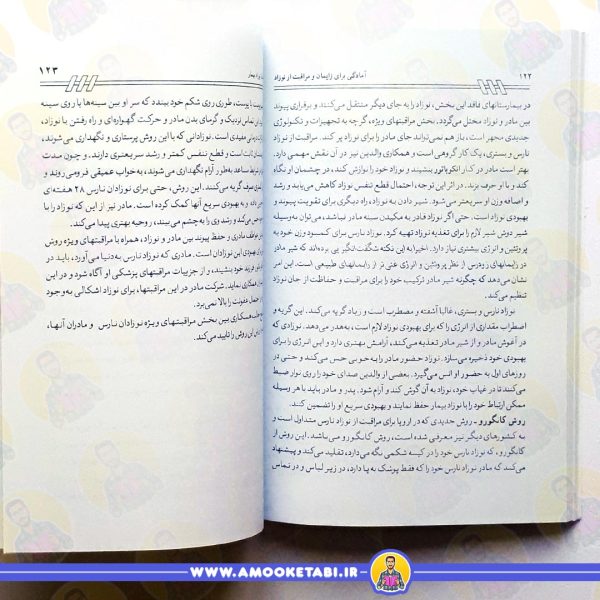 ۱۲۲
آمادگی برای زایمان و مراقبت از نوزاد
در بیمارستانهای فاقد این بخش، نوزاد را به جای دیگر منتقل می‌کنند و برقراری پیوند
بین مادر و نوزاد مختل می‌گردد. بخش مراقبتهای ویژه، گر چه به تجهیزات و تکنولوژی
جدیدی مجهز است، باز هم نمی‌تواند جای مادر را برای نوزاد پر کند. مراقبت از نوزاد
نارس و بستری، یک کار گروهی است و همکاری والدین نیز در آن نقش مهمی دارد.
بهتر است مادر در کنار انکوباتور بنشیند و نوزاد خود را نوازش کند، در چشمان او نگاه
کند و با او حرف بزند. در اثر این توجه، احتمال قطع تنفس نوزاد کاهش می‌یابد و رشد
و اضافه وزن او سریعتر می‌شود. شیر دادن به نوزاد، راه دیگری برای تقویت پیوند و
بهبودی نوزاد است. حتی اگر نوزاد قادر به مکیدن سینه مادر نباشد، می‌توان به‌وسیله
شیر دوش شیر لازم را برای تغذیه نوزاد تهیه کرد. نوزاد نارس برای کمبود وزن خود به
پروتئین و انرژی بیشتری نیاز دارد. اخیرا به این نکته شگفت‌انگیز پی برده‌اند که شیر مادر
در زایمانهای زودرس از نظر پروتئین و انرژی غنی تر از زایمانهای طبیعی است. این امر
نشان می‌دهد که چگونه شیر مادر ترکیب خود را برای مراقبت و حفاظت از جان نوزاد
تنظیم می‌کند.
نوزاد نارس و بستری، غالبا آشفته و مضطرب است و زیاد گریه می‌کند. این گریه و
اضطراب مقداری از انرژی را که برای بهبودی نوزاد لازم است، به‌هدر می‌دهد. نوزادی که
در آغوش مادر و از شیر مادر تغذیه می‌کند، آرامش بهتری دارد و این انرژی را برای
بهبودی خود ذخیره می‌سازد. نوزاد حضور مادر را به خوبی حس می‌کند و حتی در
روزهای اول به حضور او انس می‌گیرد. بعضی از والدین صدای خود را روی نوار ضبط
می‌کنند تا در غیاب خود، نوزاد به آن گوش کند و آرام شود. پدر و مادر باید با هر وسیله
ممکن ارتباط خود را با نوزاد بیمار حفظ نمایند و بهبودی سریع او را تضمین کنند.
روش کانگورو ـ روش جدیدی که در اروپا برای مراقبت از نوزاد نارس متداول است و
به کشورهای دیگر نیز معرفی شده است، روش کانگورو می باشد. این روش از
کانگورو، که نوزاد نارس خود را در کیسه شکمی نگه می‌دارد، تقلید می‌کند و پیشنهاد
می‌کند که مادر نوزاد نارس خود را که فقط پوشک به پا دارد، در زیر لباس و در تماس
۱۲۳
بیمار
با پوست، طوری روی شکم خود ببندد که سر او بین سینه‌ها یا روی سینه
تماس نزدیک و گرمای بدن مادر و حرکت گهواره‌ای و راه رفتن با نوزاد،
مفیدی است. نوزادانی که با این روش پرستاری و نگهداری می شوند،
است و قطع تنفس کمتر و رشد سریعتری دارند. و چون مدت
مساعد به‌طور آرام نگهداری می‌شوند، به‌خواب عمیقی فرومی‌روند و
صرف گریه نمی‌کنند. این روش، حتی برای نوزادان نارس ۲۸ هفته‌ای
و به بهبودی سریع آنها کمک کرده است. مادر نیز از این که نوزاد را با
می‌کند و رشد وی را به چشم می‌بیند، روحیه بهتری پیدا می‌کند.
عواطف مادری و حفظ پیوند بین مادر و نوزاد، همراه با مراقبتهای ویژه روش
بهبودی این نوزادان است. مادری که نوزاد نارس به‌دنیا می‌آورد، باید در
فرزند خود سهیم شود، از جزییات مراقبتهای پزشکی او آگاه شود و در این
همکاری نماید. شرکت مادر در این مراقبتها، برای نوزاد اشکالی به‌وجود
عفونت را بالا نمی‌برد.
همکاری بین بخش مراقبتهای ویژه نوزادان نارس و مادران آنها،
این روش را تایید می‌کند.
WWW.AMOOKETABI.IR